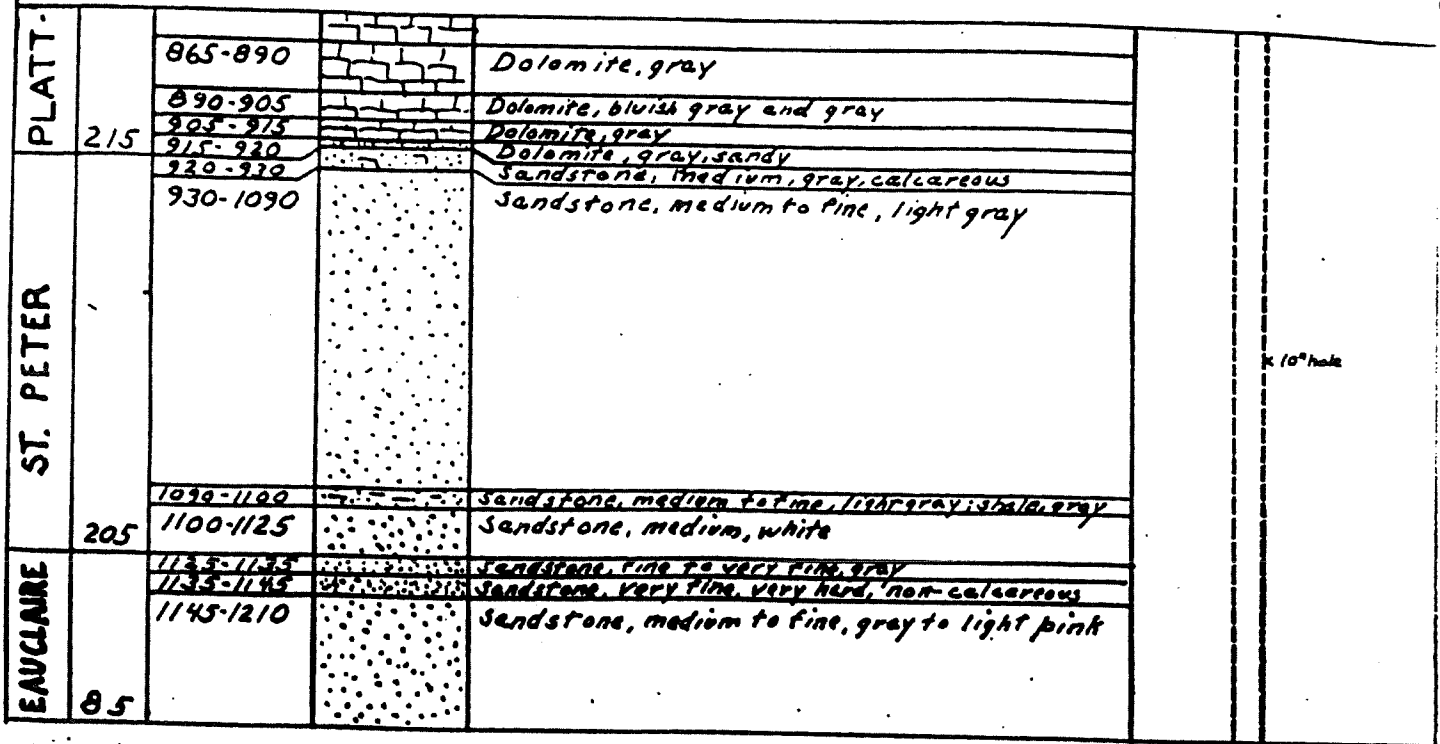 PLATT.
215
865-890 Dolomite, gray
890-905 Dolomite, bluish gray and gray
905-915 Dolomite, gray
915-920 Dolomite, gray, sandy
920-930 Sandstone, medium, gray, calcareous
930-1090 Sandstone, medium to fine, light gray
x 10" hole
ST. PETER
205
1090-1100 Sandstone, medium to fine, light gray; shale, gray
1100-1125 Sandstone, medium, white
EAUCLAIRE
85
1125-1135 Sandstone, fine to very fine, gray
1135-1145 Sandstone, very fine, very hard, non-calcareous
1145-1210 Sandstone, medium to fine, gray to light pink